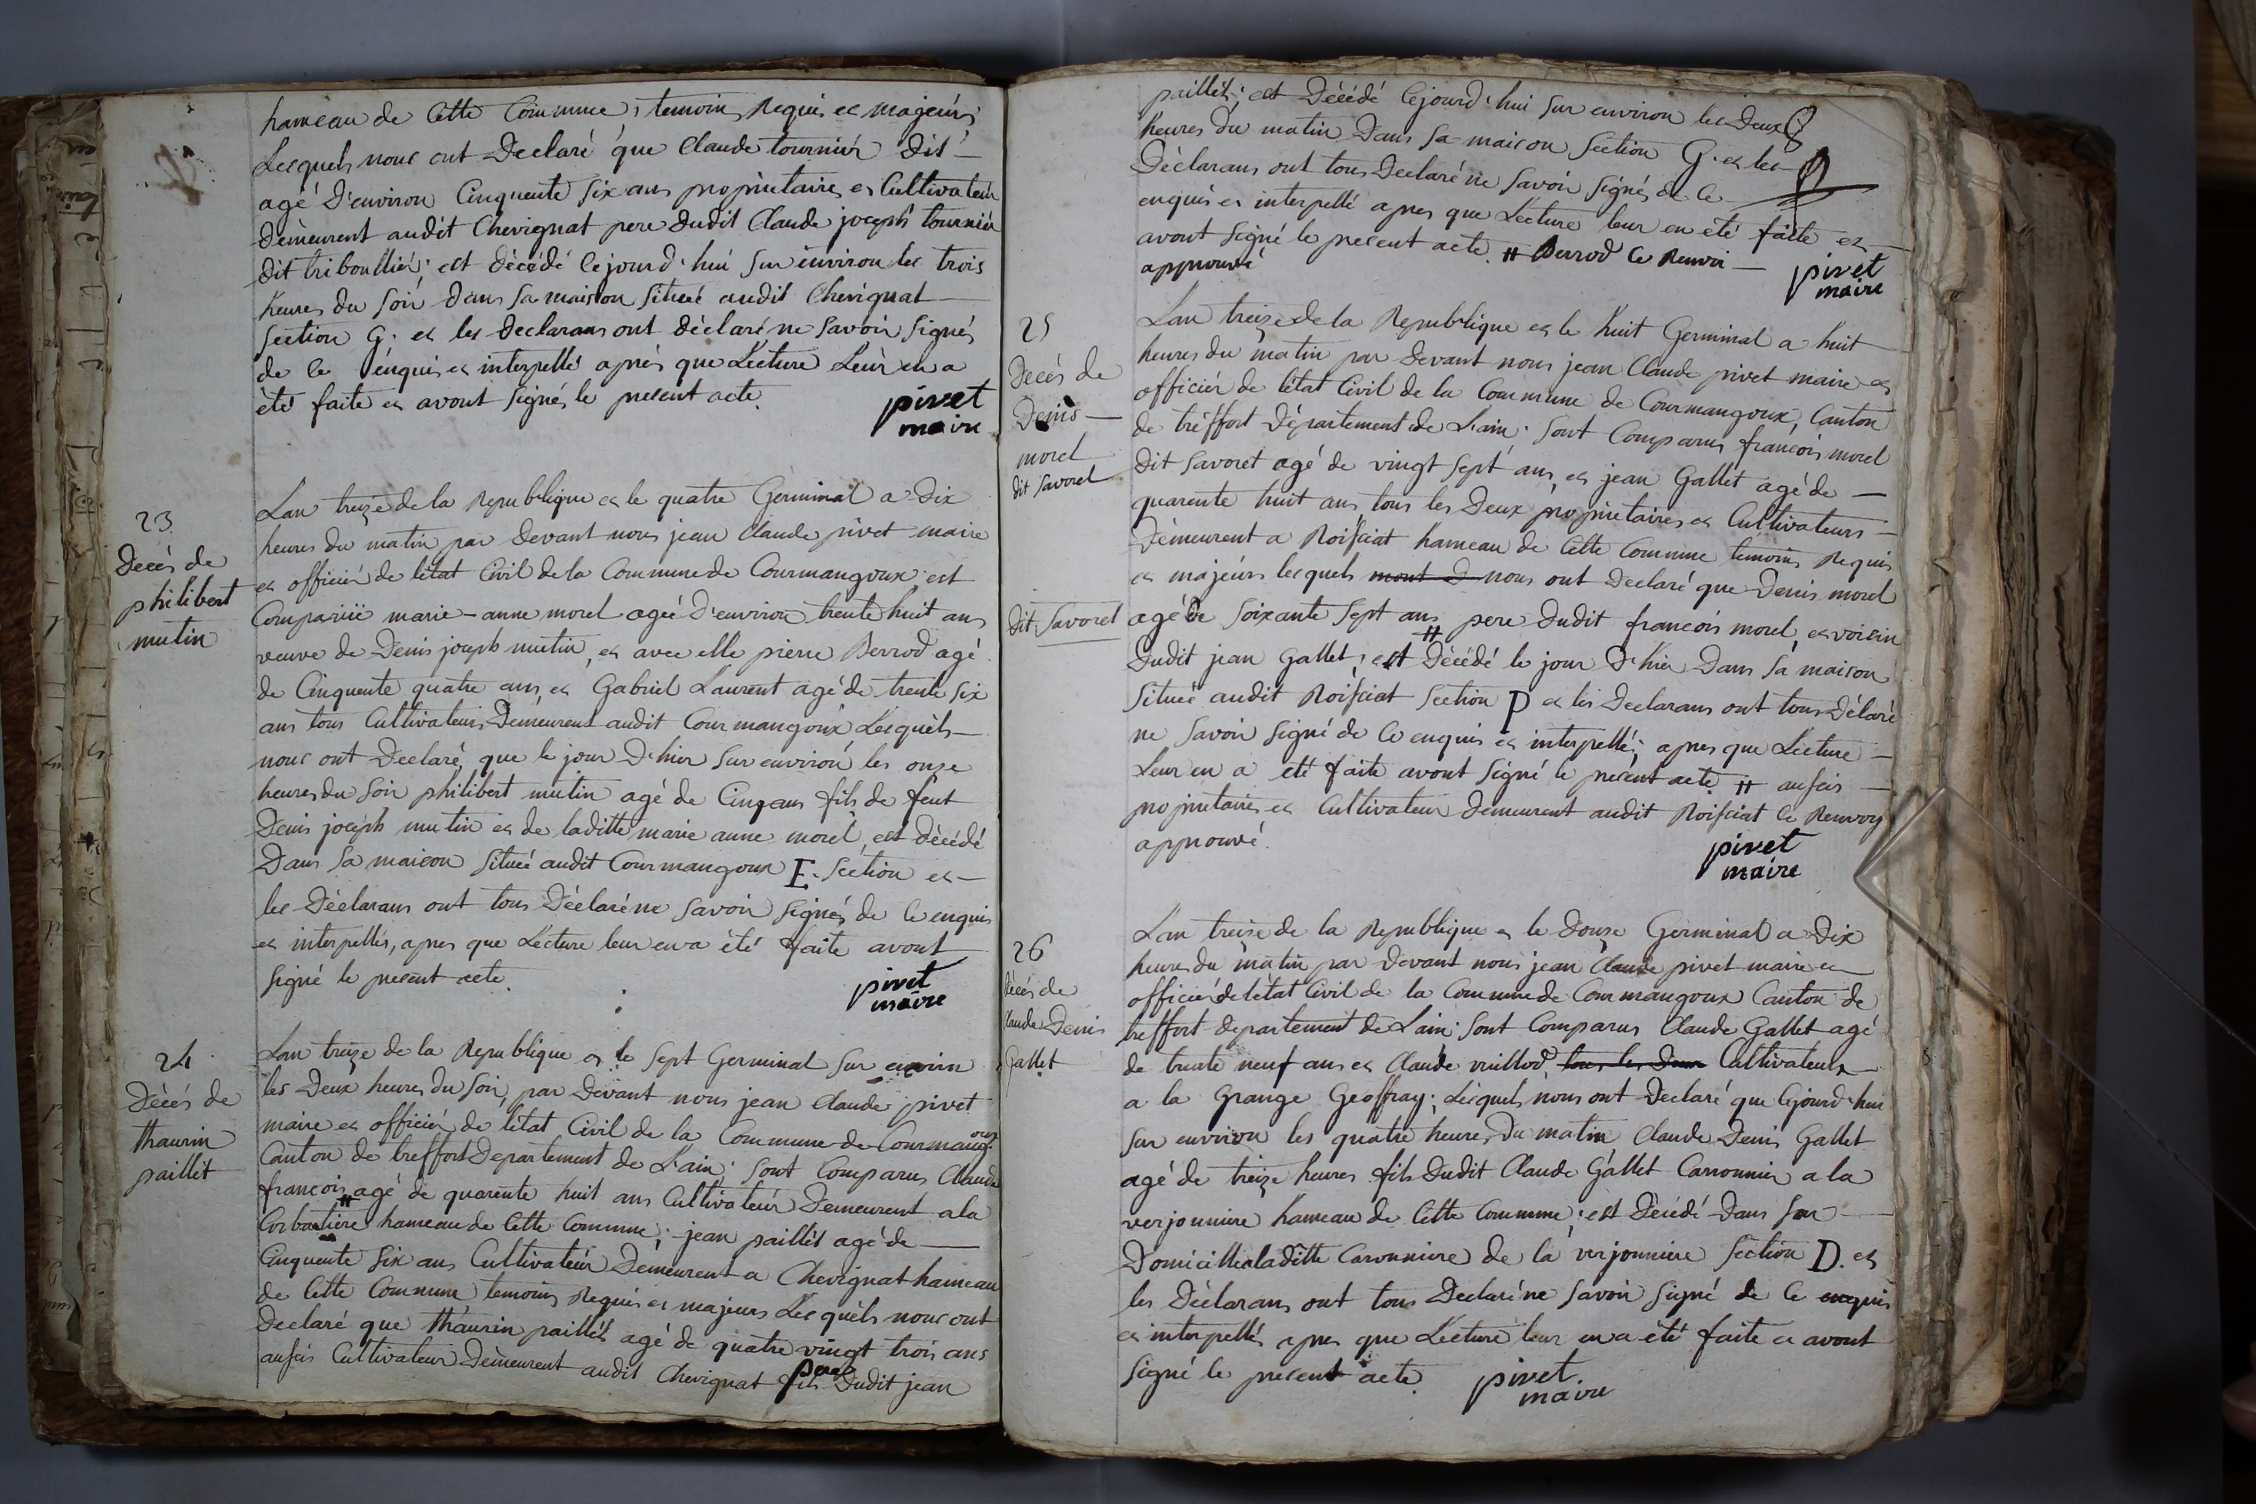 hameau de Cette Commune, temoins Requis et majeurs
Lesquels nous ont Declaré que Claude tournier dit
agé D'environ Cinquente Six ans propriettaire et Cultivateur
Demeurent audit Chevignat pere dudit Claude joseph tournier
dit triboullier; est décédé Cejourd'hui Sur environ les trois
heures du Soir dans Sa maison Situeé audit Chevignat
Section G. et les declarans ont déclaré ne Savoir Signés
de Ce enquis et interpellé après que Lecture Leur en a
été faite et avont Signés le present acte.
pivet
maire
23
Decès de
philibert
mutin
Lan treize de la Republique et le quatre Germinal a Dix
heures du matin par Devant nous jean Claude pivet maire
et officier de l'état Civil de la Commune de Courmangoux est
Comparüe marie-anne morel ageé D'environ trente huit ans
veuve de Denis joseph mutin, et avec elle pierre Berrod agé
de Cinquente quatre ans et Gabriel Laurent agé de trente Six
ans tous Cultivateurs Demeurent audit Courmangoux Lesquels
nous ont Declaré que le jour D'hier Sur environ les onze
heures du Soir philibert mutin agé de Cinq ans fils de feut
Denis joseph mutin et de laditte marie anne morel, est décédé
Dans Sa maison Situeé audit Courmangoux E. Section et
les Déclarans ont tous Déclaré ne Savoir Signés de Ce enquis
et interpellés, apres que Lecture leur en a été faite avont
Signé le present acte.
pivet
maire
24
Décés de
thaurin
paillet
Lan treize de la Republique et le Sept Germinal Sur environ
les Deux heures du Soir, par Devant nous jean Claude pivet
maire et officier de l'état Civil de la Commune de Courmangoux
Canton de treffort Departement de L'ain; Sont Comparus Claude
francois # agé de quarente huit ans Cultivateur Demeurent a la
Corbatiere hameau de Cette Commune; jean paillet agé de
Cinquente Six ans Cultivateur Demeurent a Chevignat hameau
de Cette Commune temoins Requis et majeurs Lesquels nous ont
Declaré que thaurin paillet agé de quatre vingt trois ans
aussis Cultivateur Demeurent audit Chevignat fils pere Dudit jean
paillet; est Décédé Cejourd'hui Sur environ les Deux
heures du matin Dans Sa maison Section G. et les
Déclarans ont tous Declaré ne Savoir Signés de Ce
enquis et interpellé apres que Lecture leur en été faite et
avont Signé le present acte. # Berrod Ce Renvoi
approuvé
pivet
maire
25
Decès de
Denis
morel
dit Savoret
Lan treize de la Republique et le huit Germinal a huit
heures du matin par Devant nous jean Claude pivet maire et
officier de l'état Civil de la Commune de Courmangoux, Canton
de tréffort Département de L'ain; Sont Comparus francois morel
dit Savoret agé de vingt Sept ans, et jean Gallet agé de
quarente huit ans tous les Deux propriettaires et Cultivateurs
Demeurent a Roissiat hameau de Cette Commune temoins Requis
et majeurs lesquels mont d nous ont Declaré que Denis morel
dit Savoret agé de Soixante Sept ans # pere dudit francois morel, et voisin
Dudit jean Gallet; est Décédé le jour D'hier Dans Sa maison
Situeé audit Roissiat Section P et les Declarans ont tous Délaré
ne Savoir Signé de Ce enquis et interpellé; apres que Lecture
Leur en a été faite avont Signé le present acte # aussis
propriettaire et Cultivateur Demeurent audit Roissiat Ce Renvoy
approuvé.
pivet
maire
26
Décés de
Claude Denis
Gallet
Lan treize de la Republique et le Douze Germinal a Dix
heures du matin par Devant nous jean Claude pivet maire et
officier de l'état Civil de la Commune de Courmangoux Canton de
treffort departement de L'ain; Sont Comparus Claude Gallet agé
de trente neuf ans et Claude vuillod, tous les Deux Cultivateurs
a la Grange Geoffray; Lesquels nous ont Declaré que Cejourd'hui
Sur environ les quatre heures Du matin Claude Denis Gallet
agé de treize heures fils Dudit Claude Gallet Carronnier a la
verjonniere hameau de Cette Commune; est Décédé Dans Son
Domicille a laditte Caronniere de la verjonniere Section D. et
les Déclarans ont tous Declaré ne Savoir Signé de Ce enquis
et interpellés apres que Lecture leur en a été faite et avont
Signé le present acte.
pivet
maire